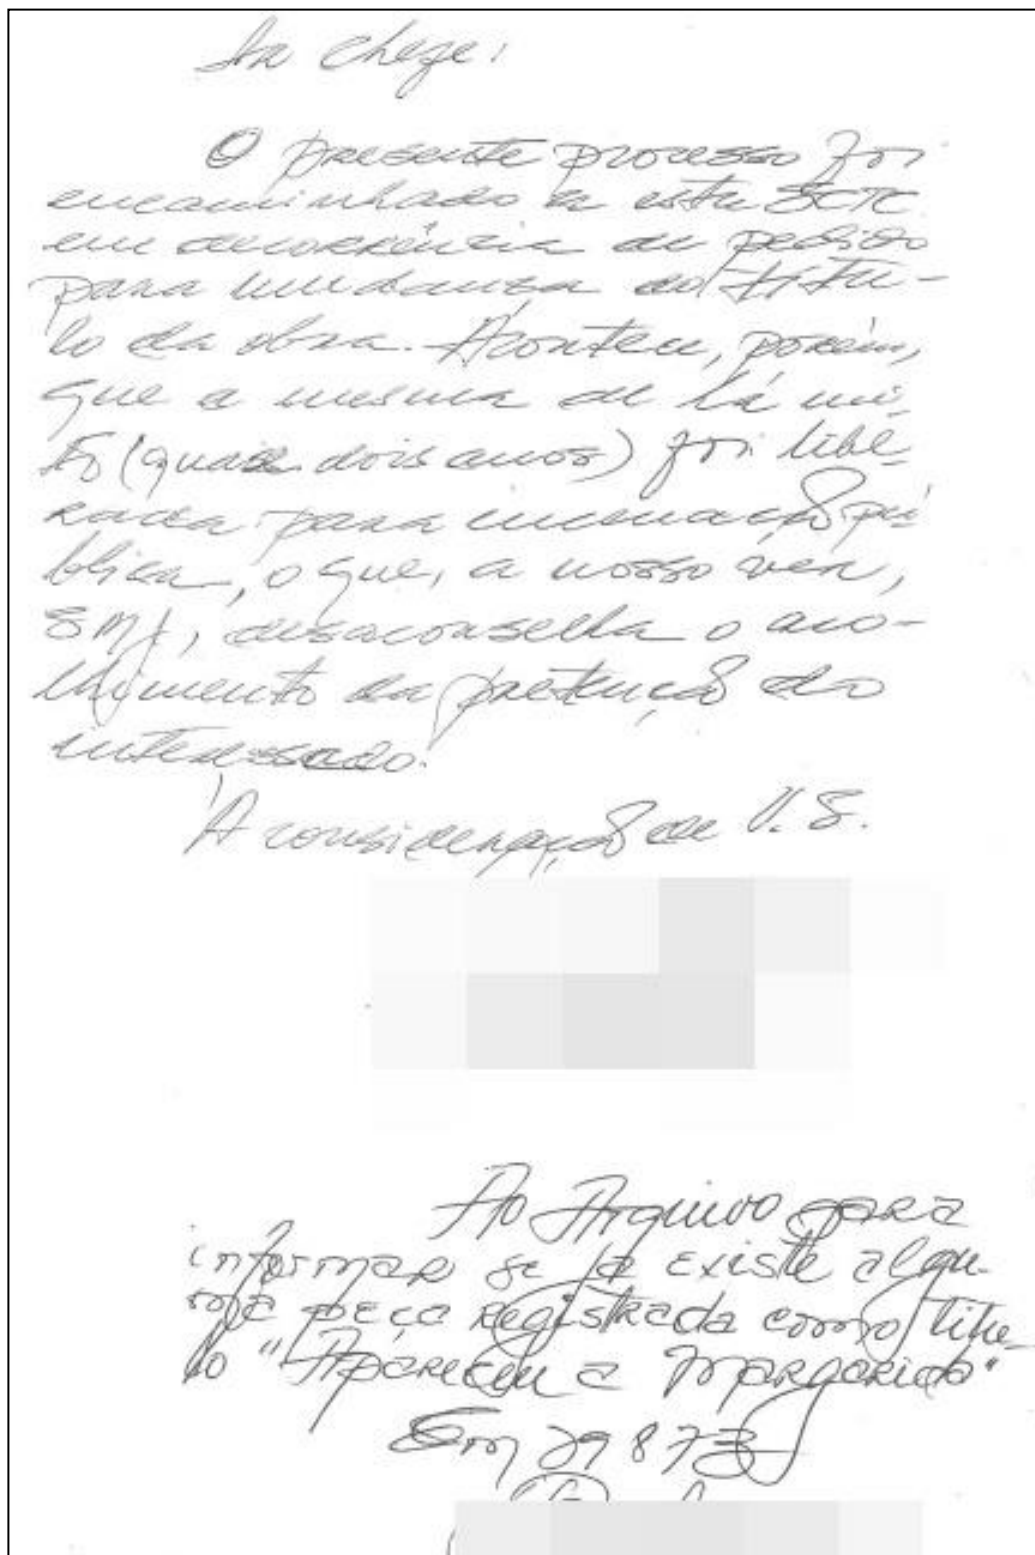 Sra Chefe:
O presente processo foi
encaminhado a este SCTC
em decorrência de pedido
para mudança do títu-
lo da obra. Acontece, porém,
que a mesma de há mui-
to (quase dois anos) foi libe-
rada para encenação pú-
blica, o que, a nosso ver,
SMJ, desaconselha o aco-
lhimento da pretenção do
interessado.
À consideração de V.S.
Ao Arquivo para
informar se já existe algu-
ma peça registrada como títu-
lo "Apareceu a Margarida"
Em 29 8 73